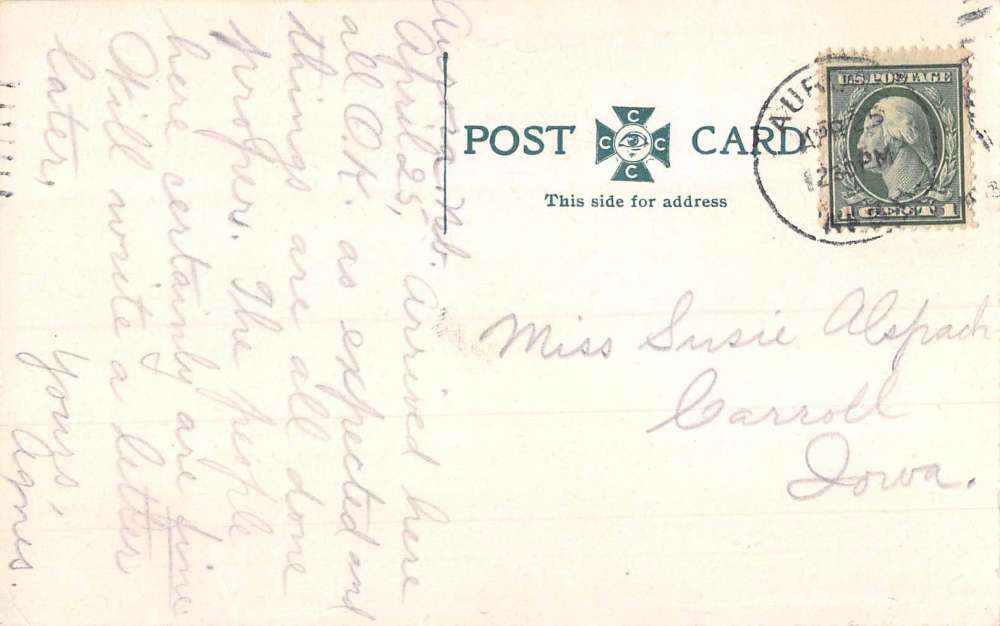 Aurora, Nb.
April 25,
Arrived here
all O.K. as expected and
things are all done
propers. The people
here certainly are fine
Will write a letter
later,
Yours,
Agnes.
POST CARD
C C C C
This side for address
AUR
APR 25
12 30 PM
U.S. POSTAGE
1 CENT 1
Miss Susie Alspach
Carroll
Iowa.